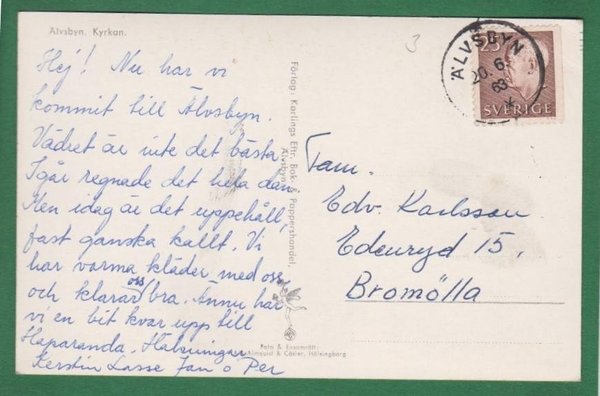 Älvsbyn. Kyrkan.
Hej! Nu har vi
kommit till Älvsbyn.
Vädret är inte det bästa
Igår regnade det hela dan
Men idag är det uppehåll,
fast ganska kallt. Vi
har varma kläder med oss
och klarar oss bra. Ännu har
vi en bit kvar upp till
Haparanda. Hälsningar
Kerstin Lasse Jan o Per
Förlag: Karlings Eftr. Bok- & Pappershandel
Älvsbyn
Foto & Ensamrätt:
Almquist & Cöster, Hälsingborg
3
25
SVERIGE
ÄLVSBYN
20.6.
63
Fam.
Edv. Karlsson
Edenryd 15.
Bromölla